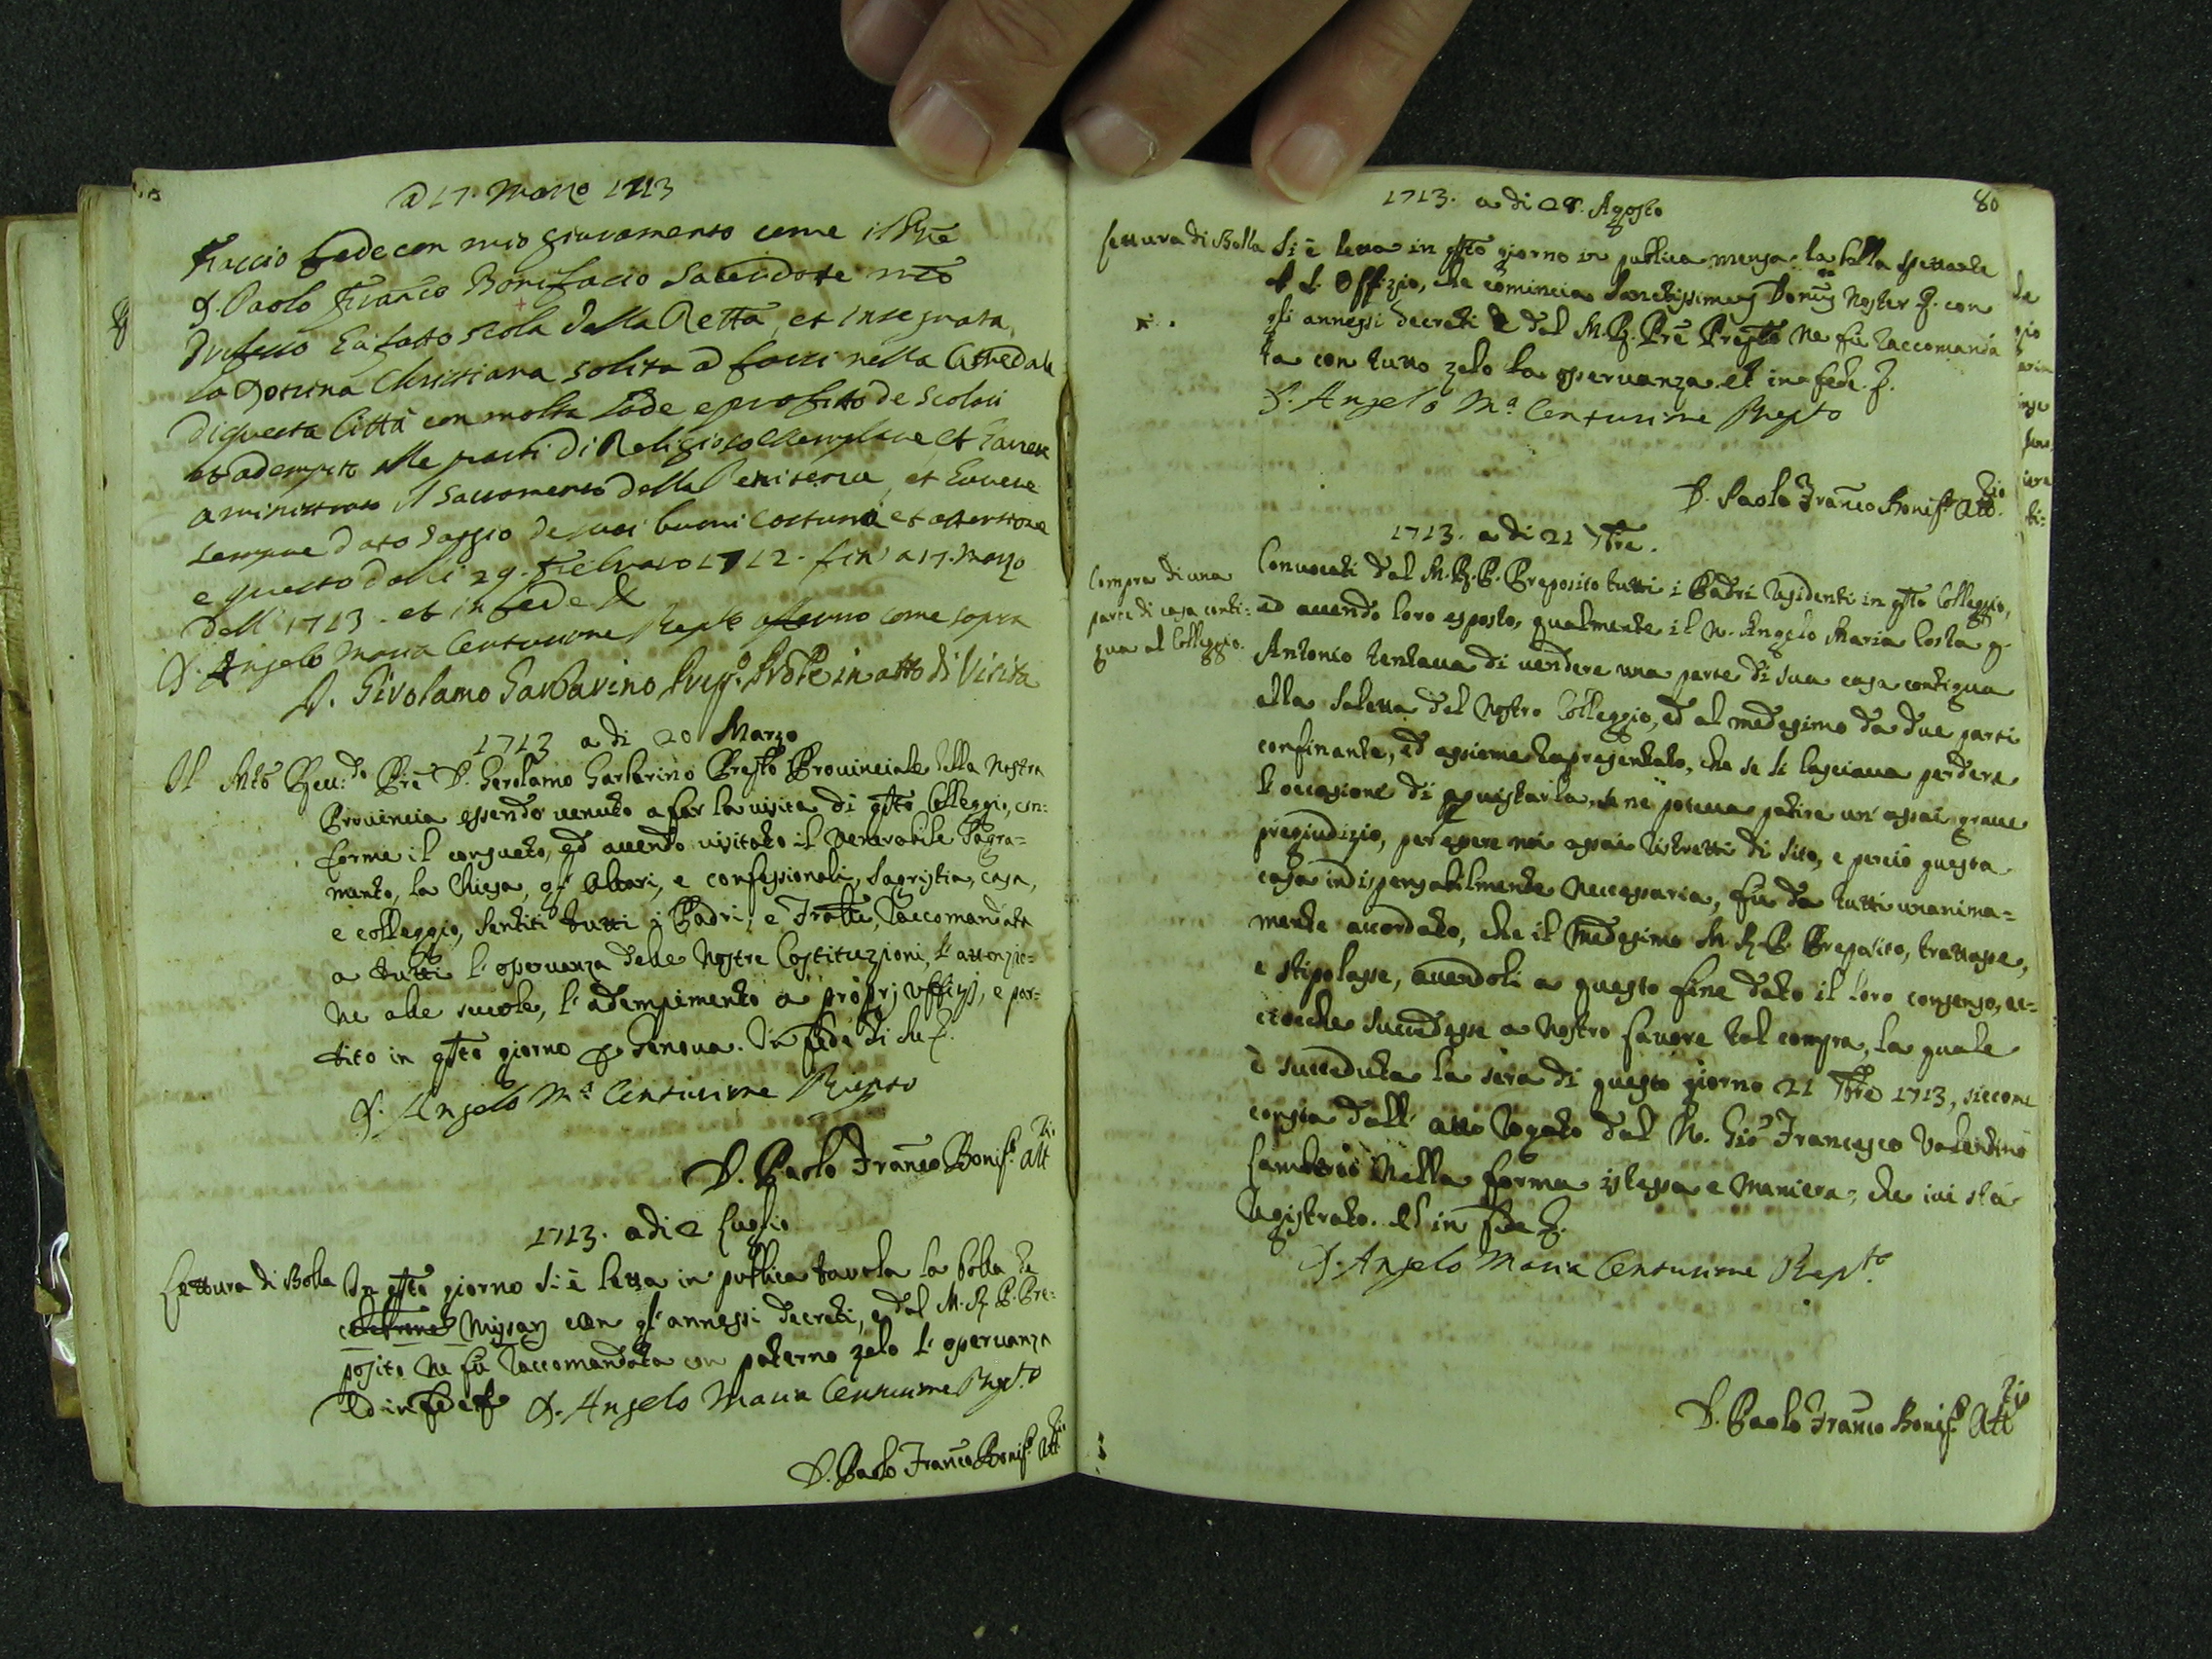 a 17. Marzo 1713
Faccio fede con mio giuramento come il Pre
D. Paolo Franco Bonifacio Sacerdote nro
Professo ha fatto scola della Retta, et insegnata
la Dotrina Christiana solita a farsi nella Cattedrale
di questa Città con molta lode e profitto de Scolari
et adempito alle parti di Religioso esemplare et havere
aministrato il Sacramento della Penitenza, et havere
sempre dato saggio de suoi buoni Costumi et attentione
e questo dalli 29. Febraro 1712. fin a 17. Marzo
dell 1713. et in fede
D. Angelo Maria Centurione Prepto affermo come sopra
D. Girolamo Garbarino Prep.o Prole in atto di Visita
1713 a di 20 Marzo
Il Mto Reu:do Pre D. Gerolamo Garbarino Prepto Prouinciale della Nostra
Prouincia essendo uenuto a far la uisita di qsto Colleggio, con:
forme il consueto, ed auendo uisitato il Venerabile Sagra=
mento, la Chiesa, gl' Altari, e confessionali, Sagristia, casa,
e colleggio, sentiti tutti i Padri, e Fratelli, raccomandata
a tutti l' osseruanza delle Nostre Costituzioni, l' attenzio=
ne alle scuole, l' adempimento a proprj Uffizij, e par=
tito in qsto giorno p Genoua. In fede di che
D. Angelo M.a Centurione Prepto
D. Paolo Franco Bonif.o Att.rio
1713. a di 2 Luglio
Lettura di Bolla
In qsto giorno si è letta in publica tauola la bolla de
Missarum con gl' annessi decreti, e dal M. R. P. Pre:
posito ne fù raccomandata con paterno zelo l' osseruanza
Ed in fede D. Angelo Maria Centurione Prep.to
D. Paolo Franco Bonif.o Att.rio
80
1713. a di 28. Agosto
Lettura di Bolla
Si è letta in qsto giorno in publica mensa la bolla spettante
al S. Offizio, che comincia Sanctissimus Domnus Noster con
gli annessi decreti e dal M. R. Pre Prepto ne fù raccomanda
ta con tutto zelo la osseruanza. et in fede.
D. Angelo M.a Centurione Prepto
D. Paolo Franco Bonif.o Att.rio
1713. a di 21 7bre.
Compra di una
parte di casa conti=
gua al Colleggio.
Conuocati dal M. R. P. Preposito tutti i Padri residenti in qsto Colleggio,
ed auendo loro esposto, qualmente il N. Angelo Maria Costa q.
Antonio tentaua di uendere una parte di sua casa contigua
alla saletta del Nostro Colleggio, ed al medesimo da due parti
confinante, ed assieme rapresentato, che se si lasciaua perdere
l' occasione di aquistarla, se ne poteua patire un' assai graue
pregiudizio, per essere noi assai ristretti di sito, e perciò questa
casa indispensabilmente neccessaria, fù da tutti unanima=
mente accordato, che il medesimo M. R. P. Preposito, trattasse,
e stipolasse, auendoli a questo fine dato il loro consenso, ac=
ciocche succedesse a nostro fauore tal compra, la quale
è succeduta la sera di questo giorno 21 7bre 1713, siccome
consta dall' atto rogato dal N. Gio Francesco Valentino
nella forma istessa e maniera, che iui stà
registrato. et in fede.
D. Angelo Maria Centurione Prep.to
D. Paolo Franco Bonif.o Att.rio